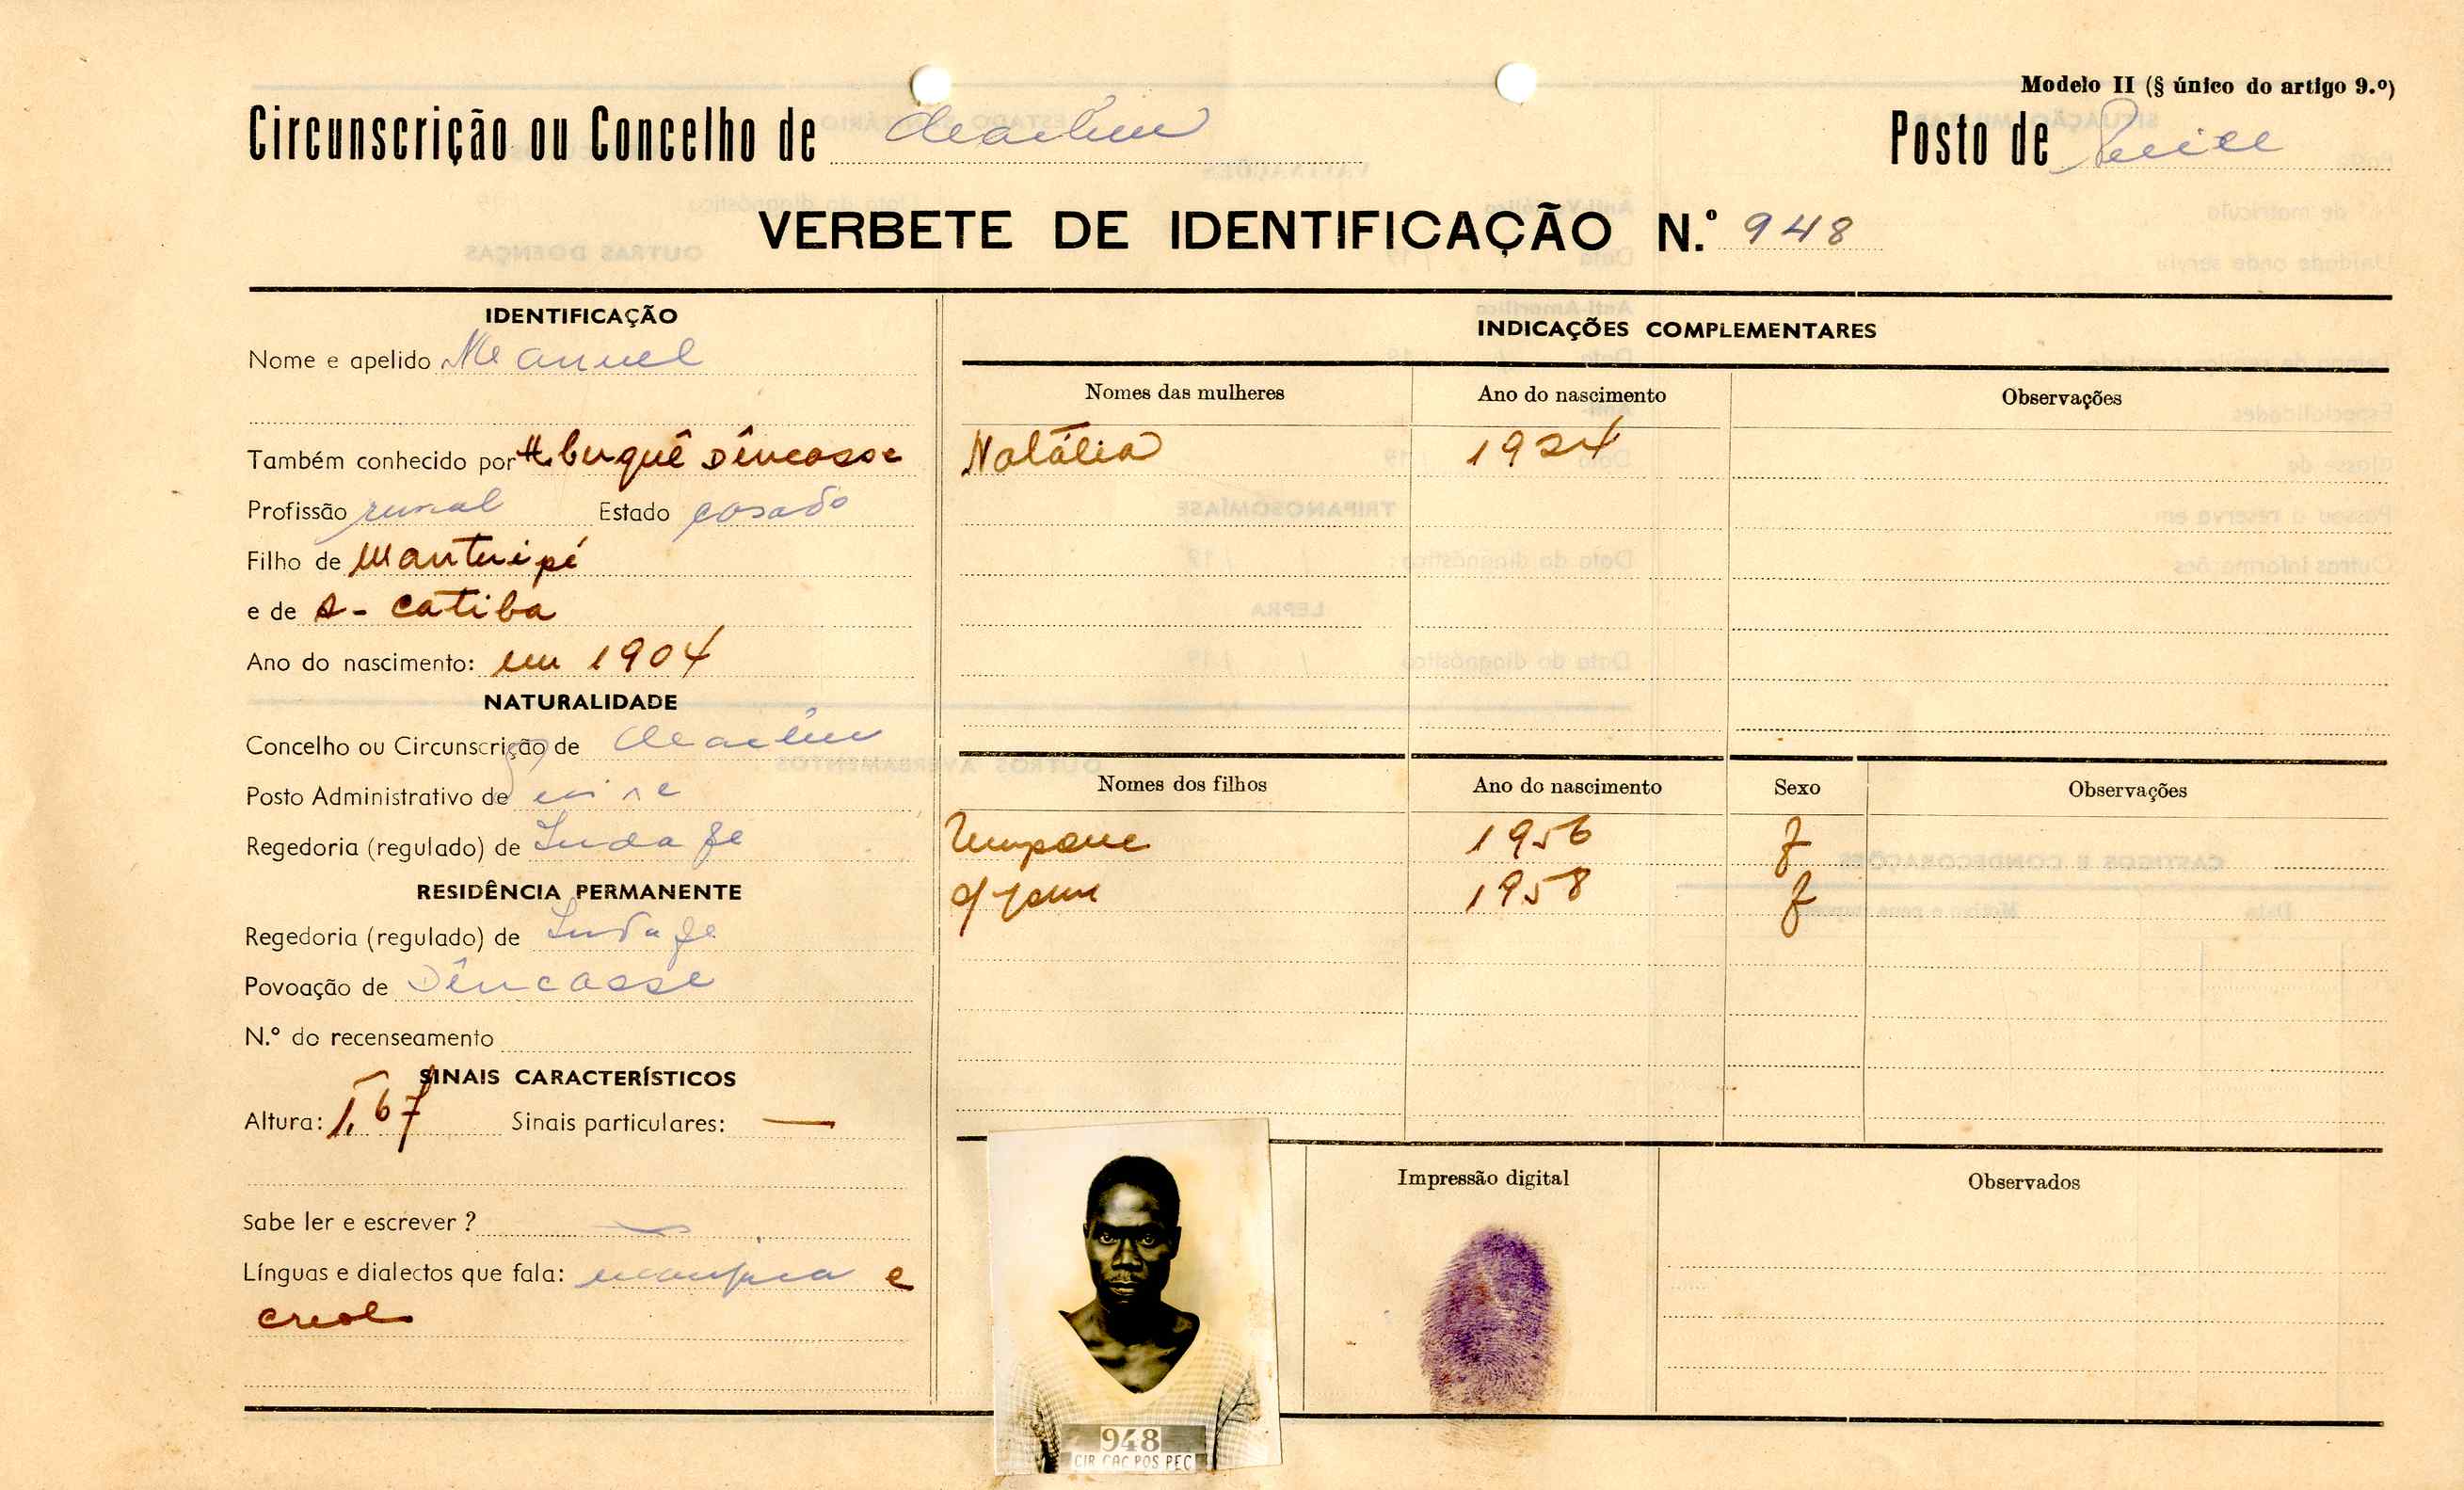 Modelo II (§ único do artigo 9.º)
Circunscrição ou Concelho de Cacheu Posto de Pecixe
VERBETE DE IDENTIFICAÇÃO N.º 948
IDENTIFICAÇÃO
Nome e apelido Manuel
Também conhecido por Dêncasse
Profissão rural Estado casado
Filho de
e de A- Catiba
Ano do nascimento: em 1904
NATURALIDADE
Concelho ou Circunscrição de Cacheu
Posto Administrativo de Pecixe
Regedoria (regulado) de
RESIDÊNCIA PERMANENTE
Regedoria (regulado) de
Povoação de Dêncasse
N.º do recenseamento
SINAIS CARACTERÍSTICOS
Altura: 1,67 Sinais particulares: —
Sabe ler e escrever? —
Línguas e dialectos que fala: manjaca e
creol
INDICAÇÕES COMPLEMENTARES
Nomes das mulheres Ano do nascimento Observações
Natália 1924
Nomes dos filhos Ano do nascimento Sexo Observações
1956 f
1958 f
Impressão digital
Observados
948
CIR CAC POS PEC